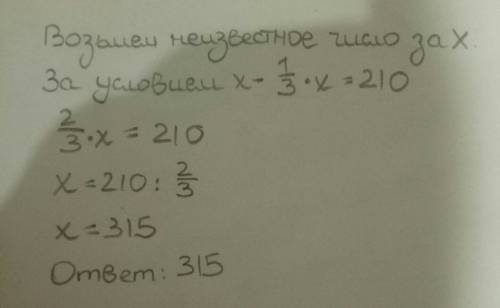 Возьмем неизвестное число за x.
За условием x - 1/3 · x = 210
2/3 · x = 210
x = 210 : 2/3
x = 315
Ответ: 315